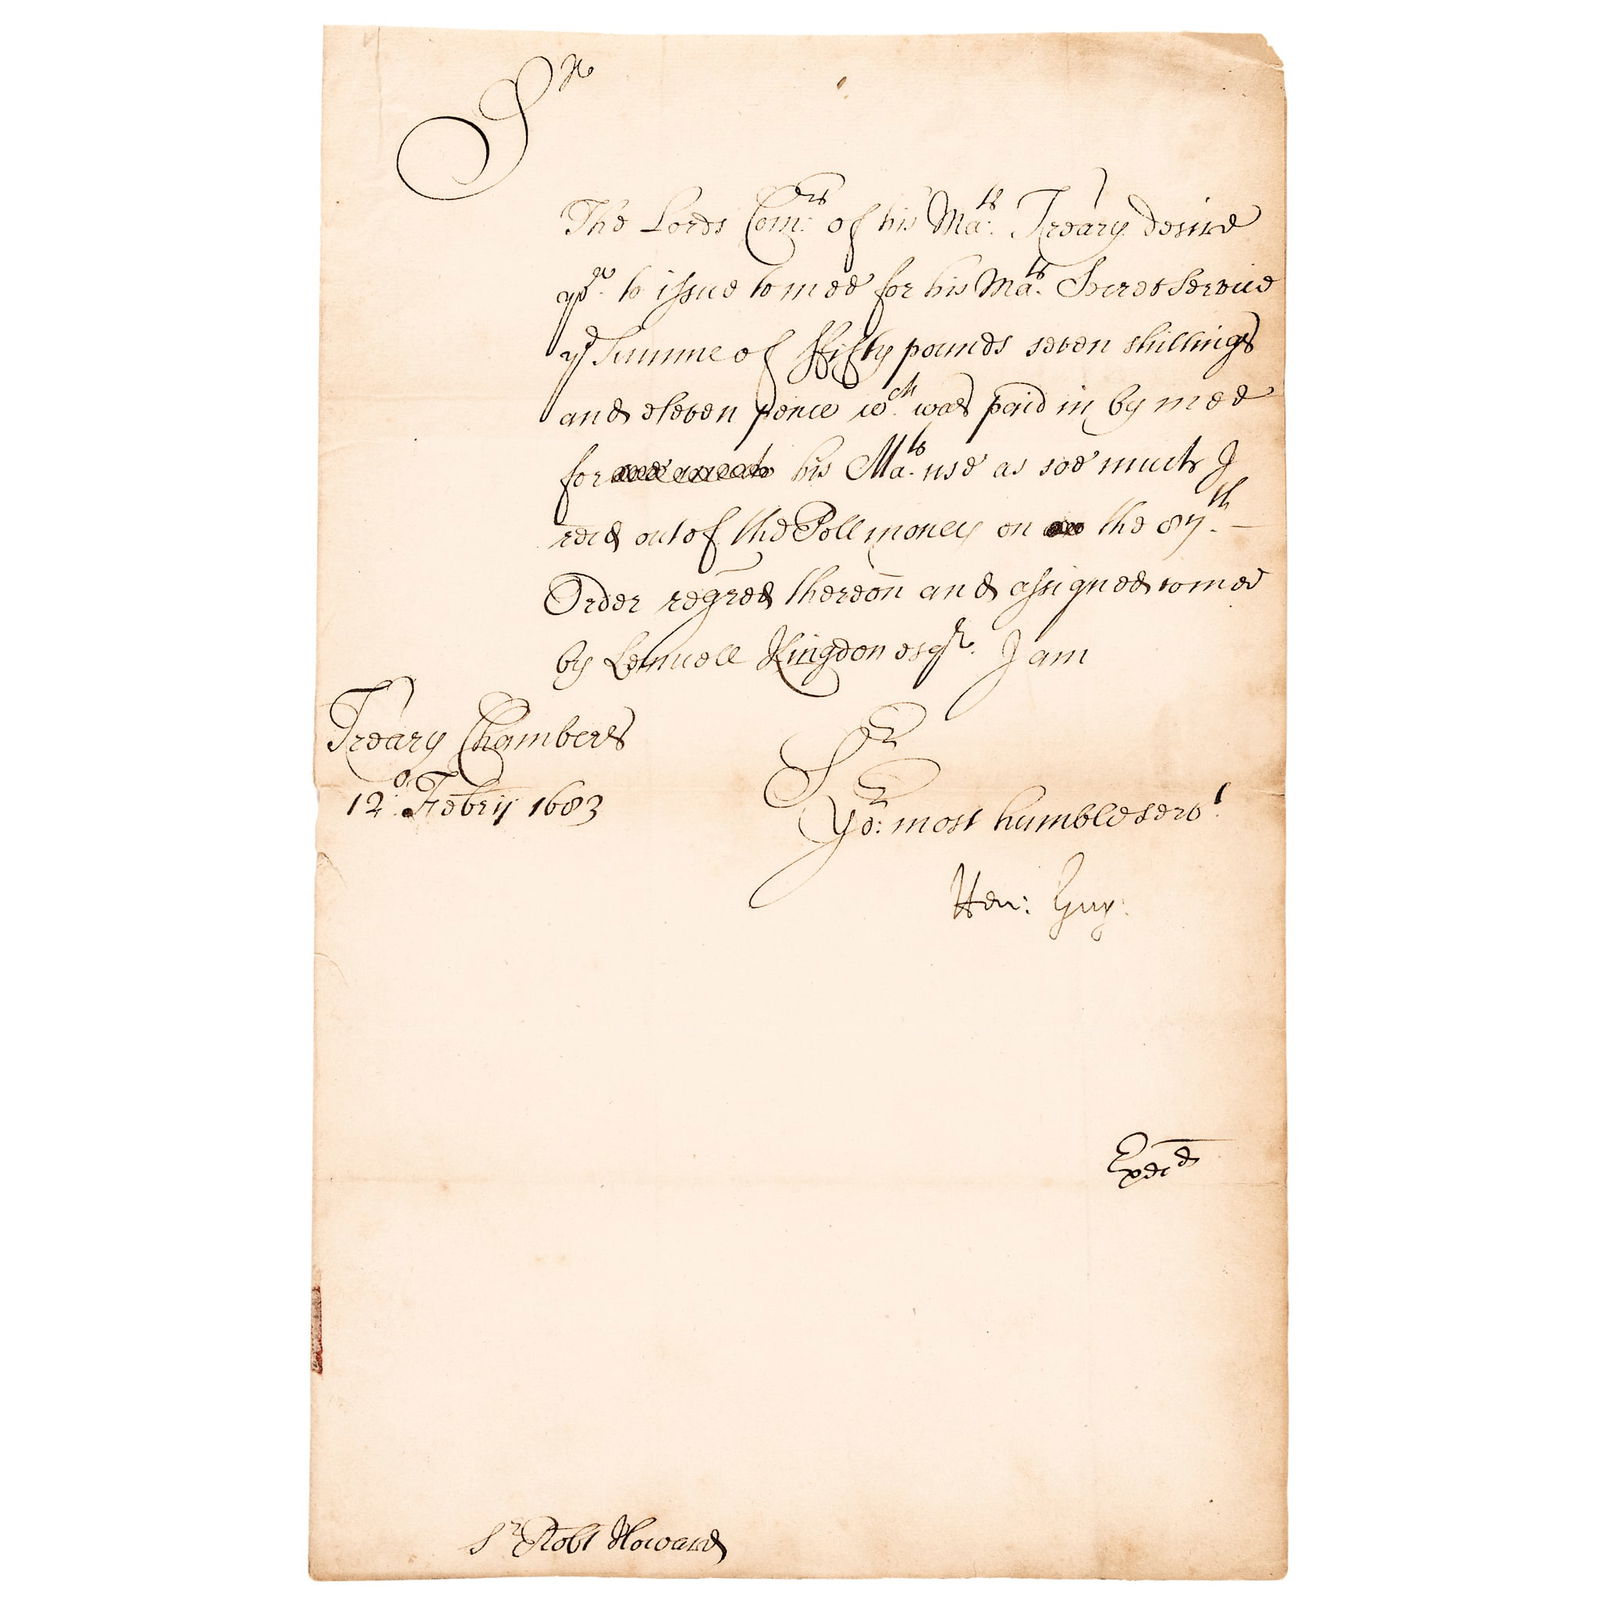 Sr
The Lords Comrs: of his Mats: Treãry desire
yor. to issue to mee for his Mats. Secret Service
ye Summe of ffifty pounds seven shillings
and eleven pence wch. was paid in by mee
for his Mats. use as soe much I
recd out of the Poll money on the 87th.
Order regred thereon and assigned to mee
by Lemuell Kingdon esqr. I am
Treãry Chambers
12o. Febry 1683
Sr
Yor: most humble servt.
Hen: Guy:
Expdd
Sr Robt Howard